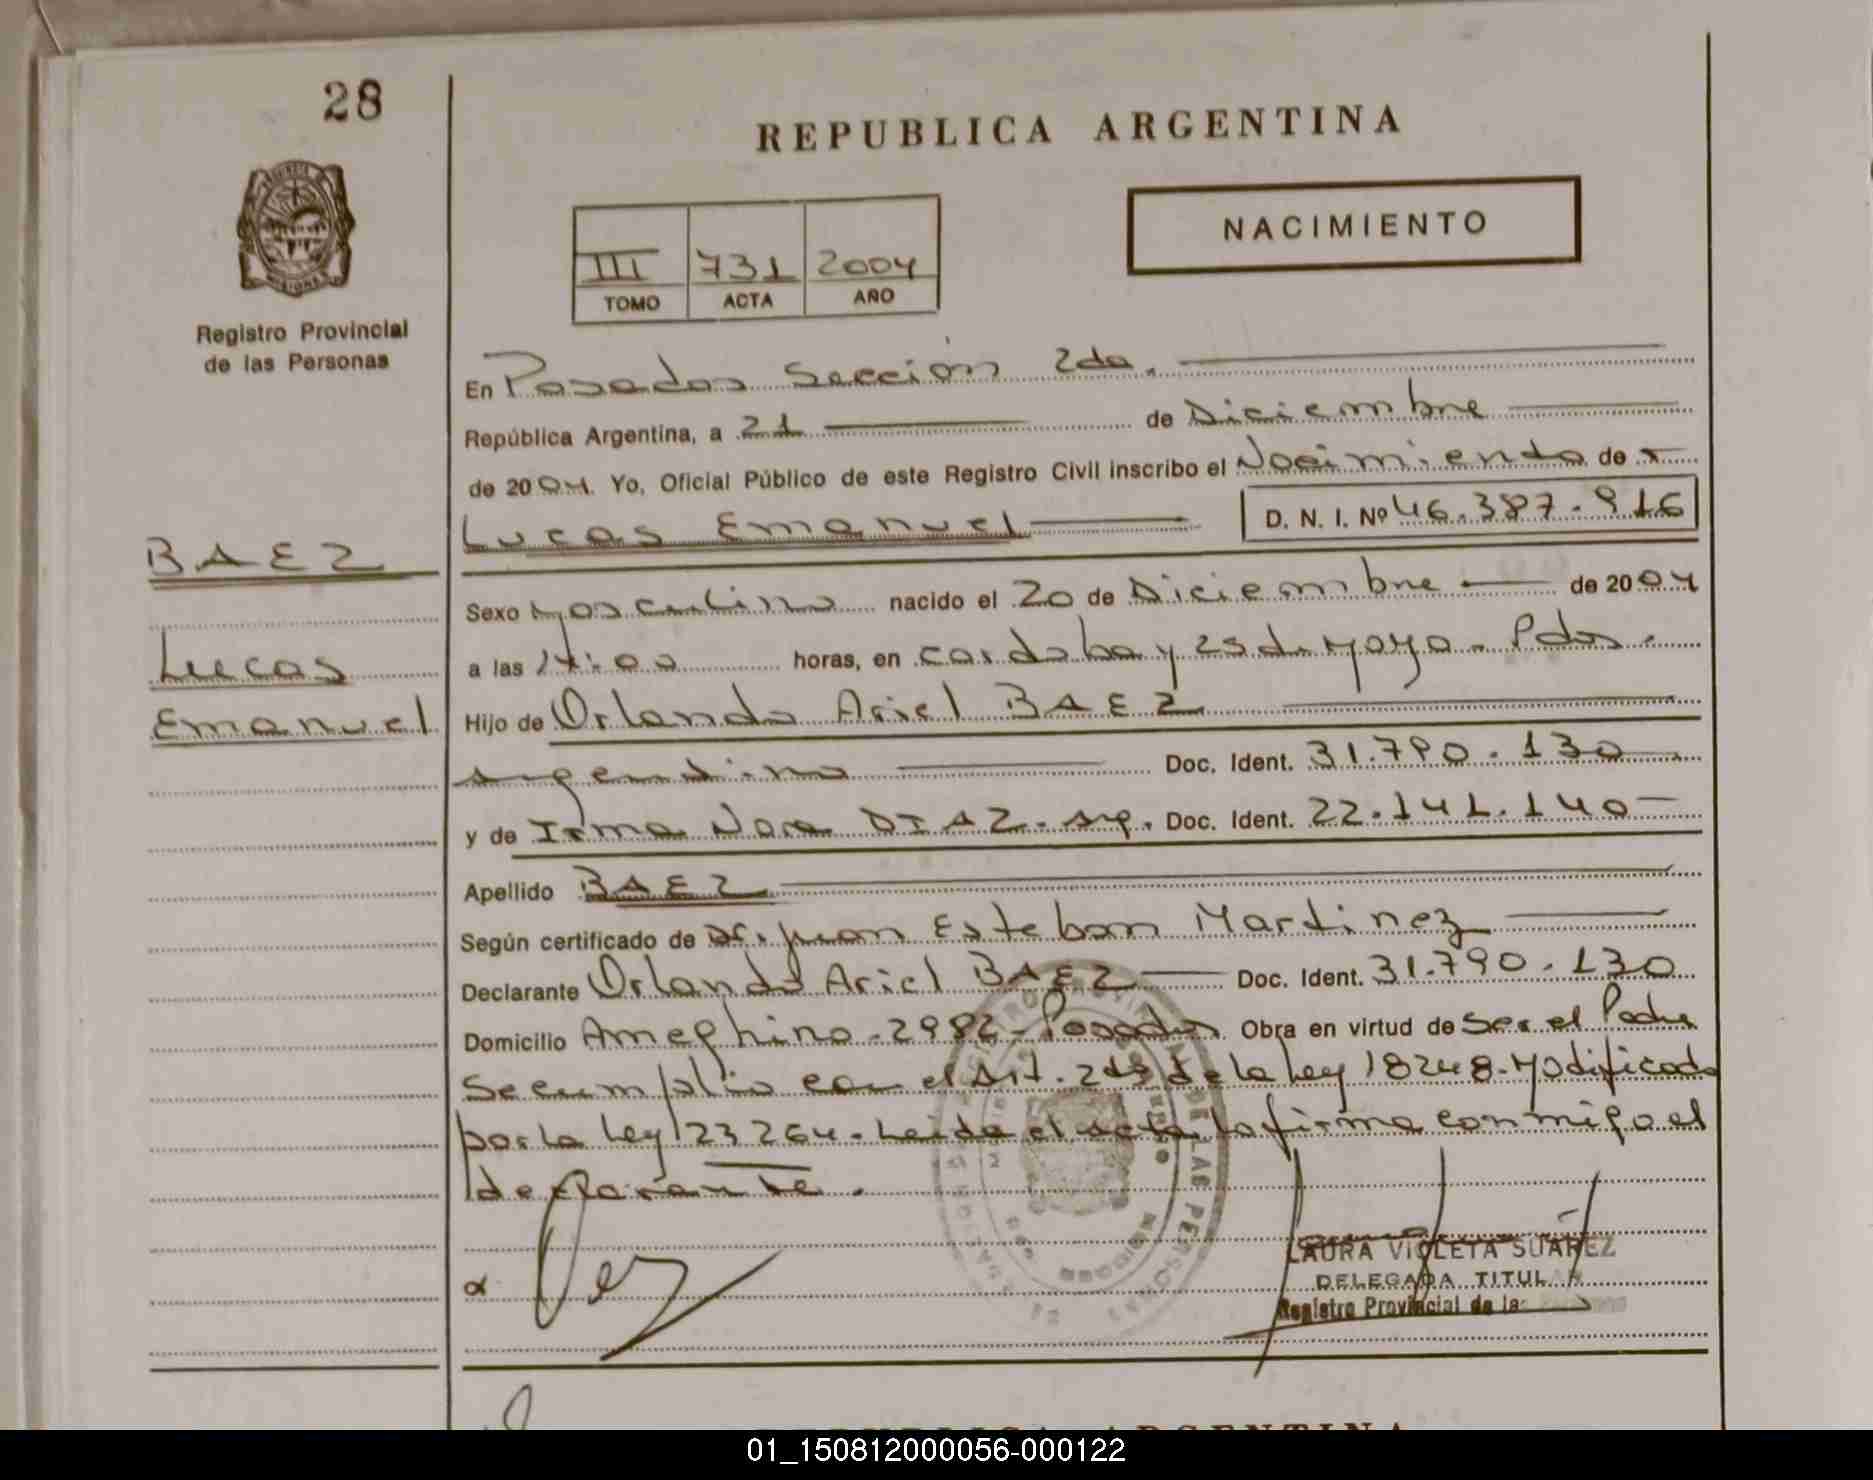 28
REPUBLICA ARGENTINA
NACIMIENTO
III 731 2004
TOMO ACTA AÑO
Registro Provincial
de las Personas
En Posadas Sección 2da.
República Argentina, a 21 de Diciembre
de 2004. Yo, Oficial Público de este Registro Civil inscribo el Nacimiento de
Lucas Emanuel D. N. I. Nº 46.387.916
BAEZ
Lucas
Emanuel
Sexo Masculino nacido el 20 de Diciembre de 2004
a las 14:00 horas, en Cordoba y 25 de Mayo - Pdas.
Hijo de Orlando Ariel BAEZ
argentino Doc. Ident. 31.790.130
y de Irma Nora DIAZ - arg. Doc. Ident. 22.141.140
Apellido BAEZ
Según certificado de Dr. Juan Esteban Martinez
Declarante Orlando Ariel BAEZ Doc. Ident. 31.790.130
Domicilio Ameghino - 2982 - Posadas Obra en virtud de Ser el Padre
Se cumplio con el Art. 2do de la Ley 18248 - Modificada
por la Ley 23264 - Leida el acta la firma conmigo el
declarante.
LAURA VIOLETA SUAREZ
DELEGADA TITULAR
Registro Provincial de las
REPUBLICA ARGENTINA
01_150812000056-000122